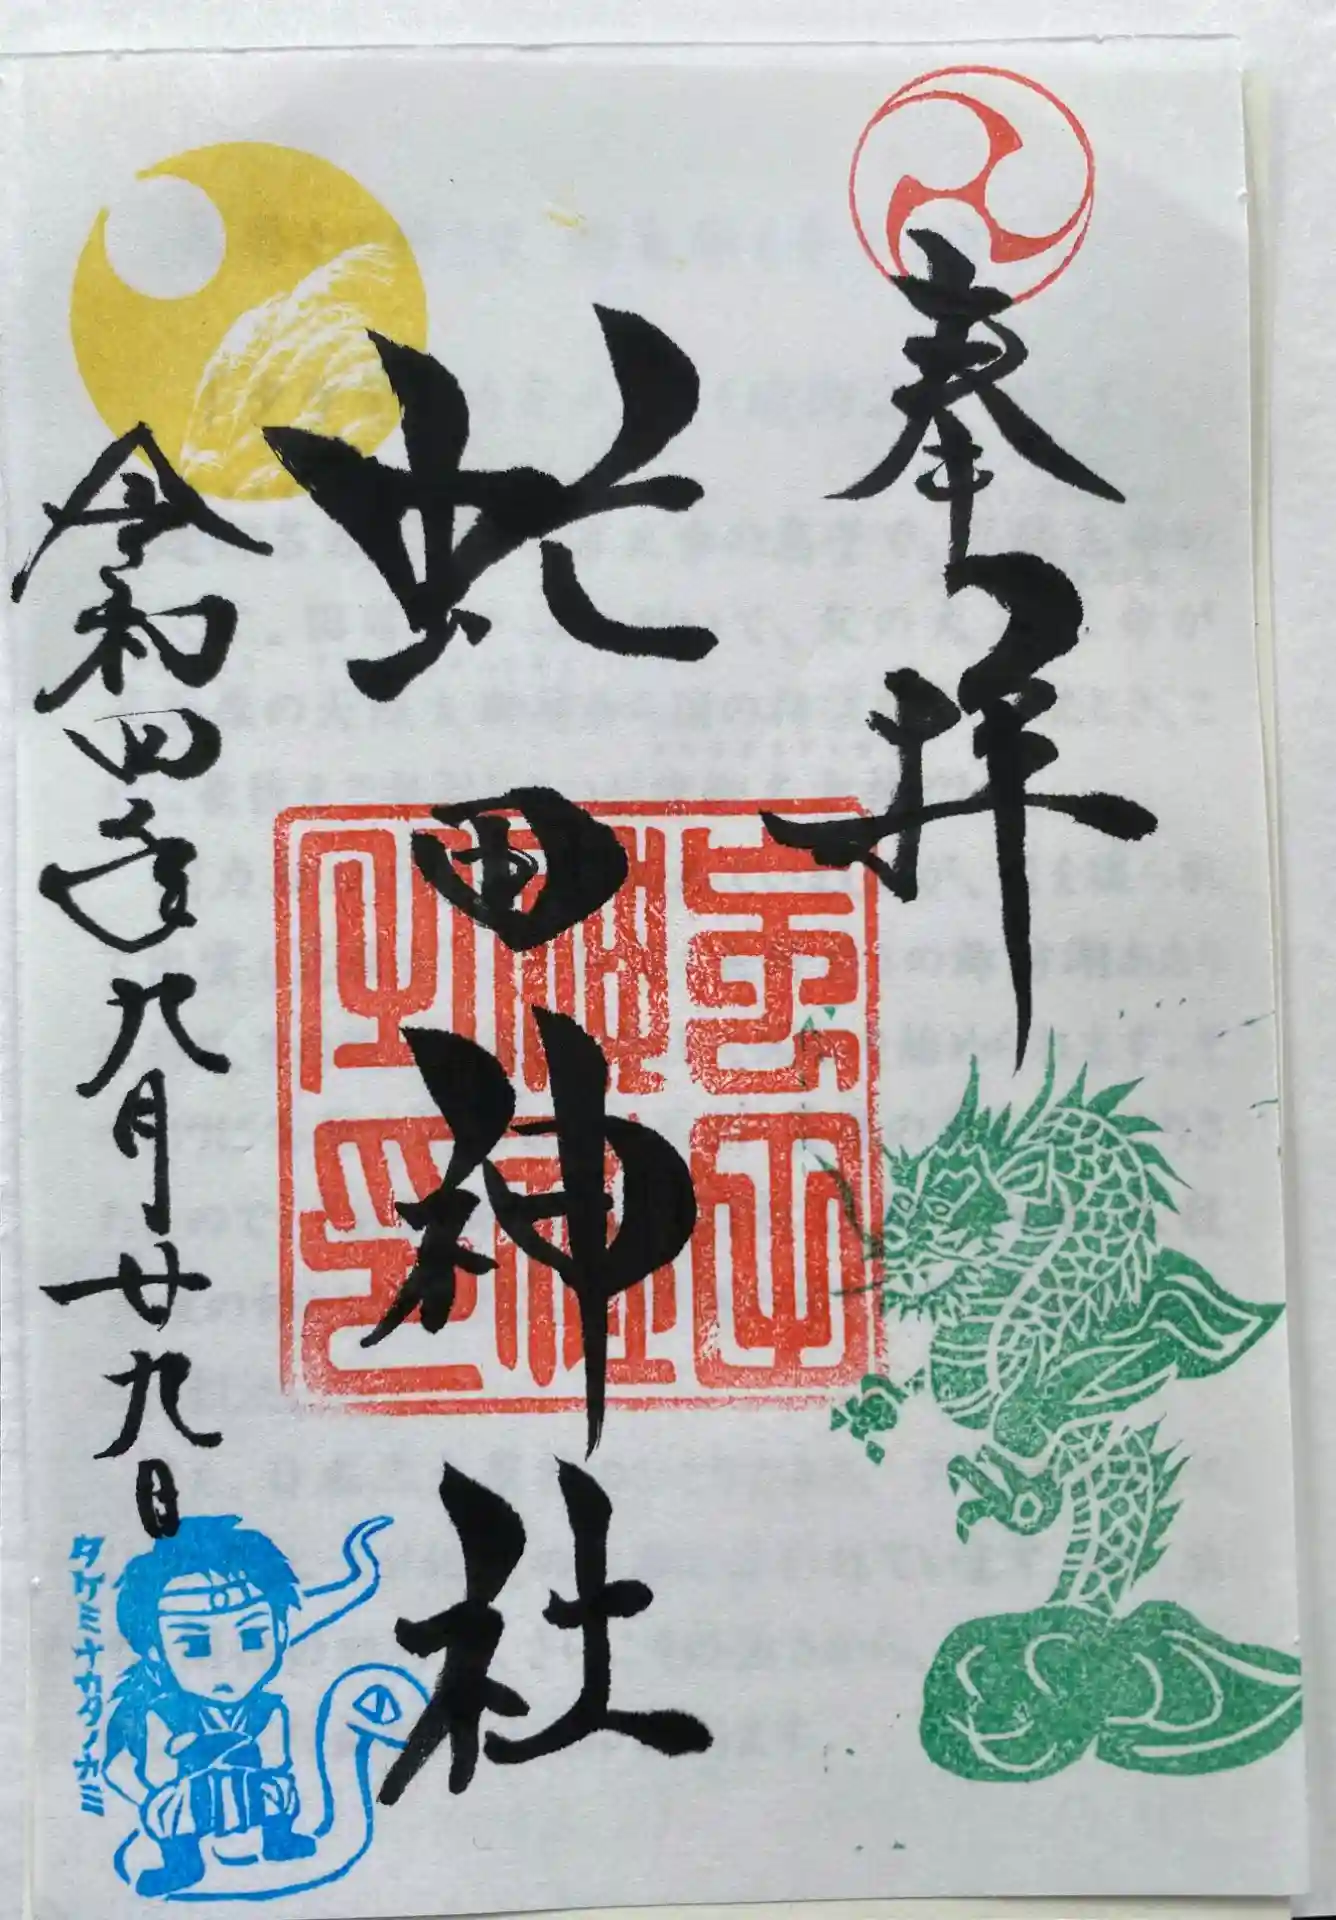 奉拝
虻田神社
令和四年九月廿九日
タケミナカタノカミ